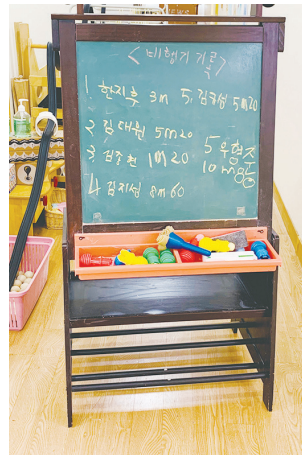 <비행기 기록>
1 한지후 3m
2 김대원 5m20
3, 김주현 1m20
4 김지섭 8m60
5, 5m20
5
10m80